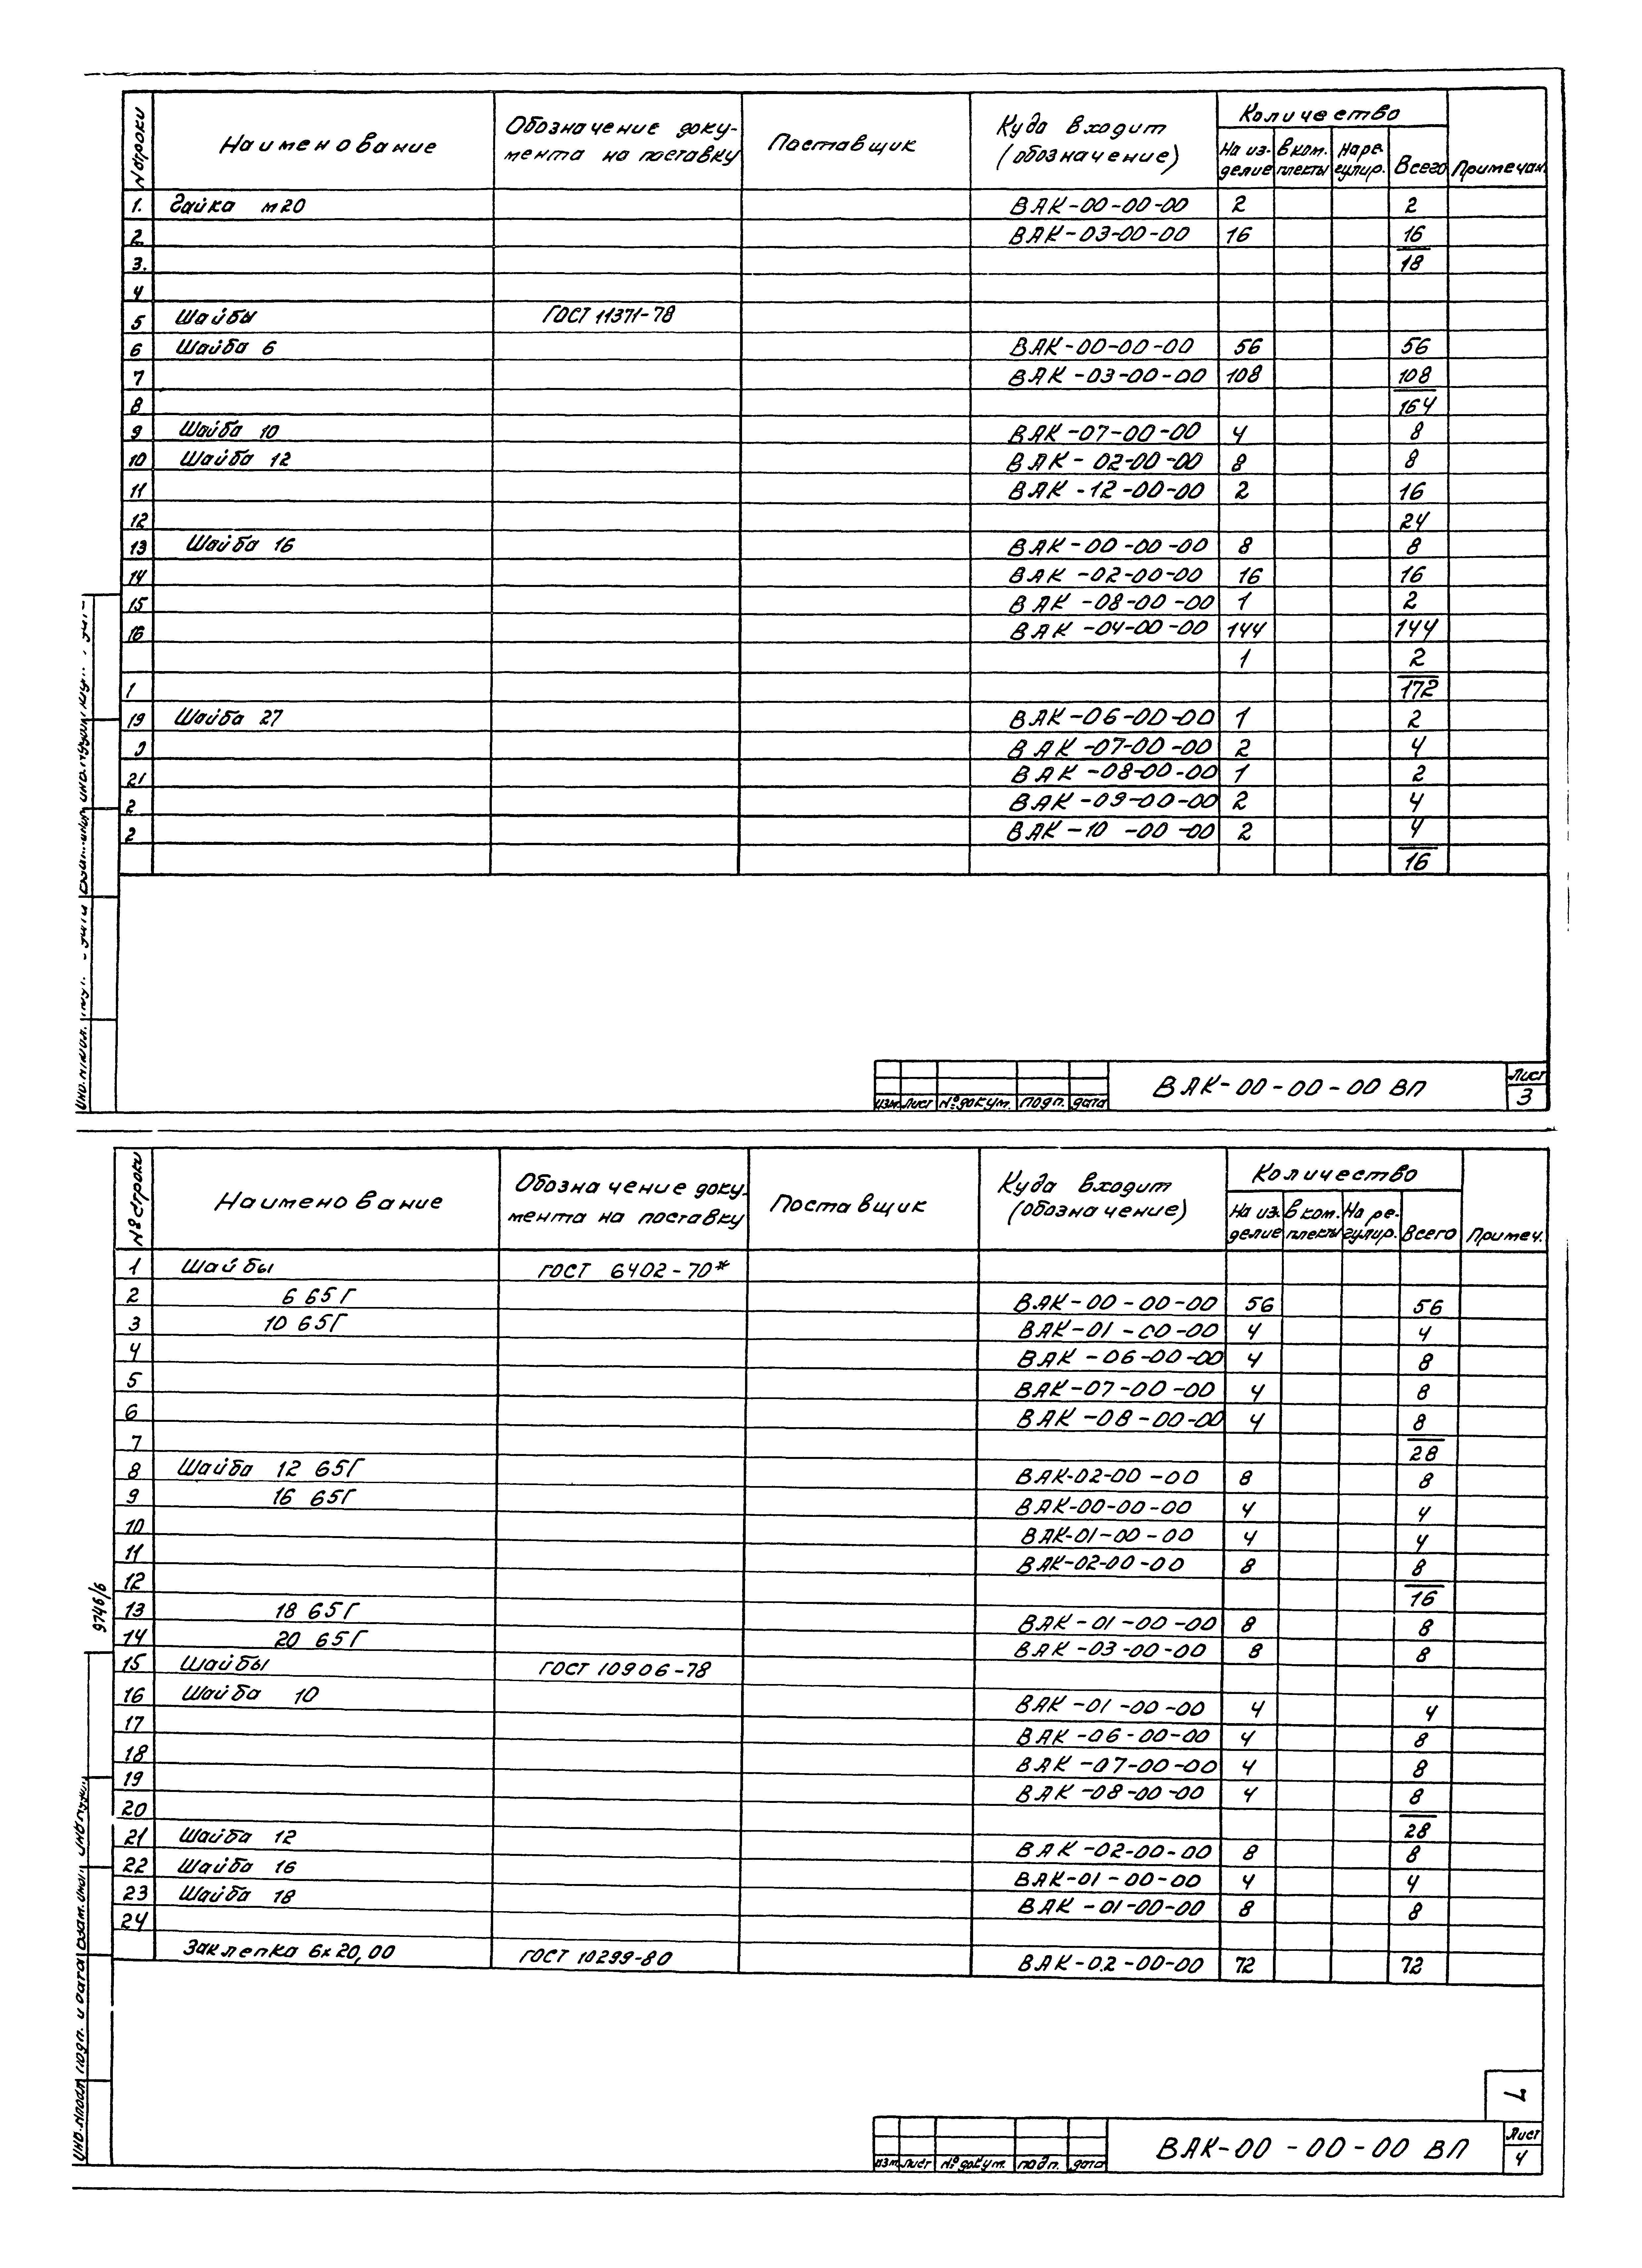 № строки Наименование Обозначение доку-мента на поставку Поставщик Куда входит (обозначение) Количество Примечан.
На из-делие В ком.плекты На ре-гулир. Всего
1. Гайка м20 ВАК-00-00-00 2 2
2. ВАК-03-00-00 16 16
3. 18
4
5 Шайбы ГОСТ 11371-78
6 Шайба 6 ВАК-00-00-00 56 56
7 ВАК-03-00-00 108 108
8 164
9 Шайба 10 ВАК-07-00-00 4 8
10 Шайба 12 ВАК-02-00-00 8 8
11 ВАК-12-00-00 2 16
12 24
13 Шайба 16 ВАК-00-00-00 8 8
14 ВАК-02-00-00 16 16
15 ВАК-08-00-00 1 2
16 ВАК-04-00-00 144 144
1 2
1 172
19 Шайба 27 ВАК-06-00-00 1 2
ВАК-07-00-00 2 4
21 ВАК-08-00-00 1 2
2 ВАК-09-00-00 2 4
2 ВАК-10-00-00 2 4
16
ВАК-00-00-00 ВП
Лист
3
изм. лист № докум. подп. дата
№ строки Наименование Обозначение доку-мента на поставку Поставщик Куда входит (обозначение) Количество Примеч.
На из-делие В ком.плекты На ре-гулир. Всего
1 Шайбы ГОСТ 6402-70*
2 6 65Г ВАК-00-00-00 56 56
3 10 65Г ВАК-01-00-00 4 4
4 ВАК-06-00-00 4 8
5 ВАК-07-00-00 4 8
6 ВАК-08-00-00 4 8
7 28
8 Шайба 12 65Г ВАК-02-00-00 8 8
9 16 65Г ВАК-00-00-00 4 4
10 ВАК-01-00-00 4 4
11 ВАК-02-00-00 8 8
12 16
13 18 65Г ВАК-01-00-00 8 8
14 20 65Г ВАК-03-00-00 8 8
15 Шайбы ГОСТ 10906-78
16 Шайба 10 ВАК-01-00-00 4 4
17 ВАК-06-00-00 4 8
18 ВАК-07-00-00 4 8
19 ВАК-08-00-00 4 8
20 28
21 Шайба 12 ВАК-02-00-00 8 8
22 Шайба 16 ВАК-01-00-00 4 4
23 Шайба 18 ВАК-01-00-00 8 8
24
Заклепка 6х20,00 ГОСТ 10299-80 ВАК-02-00-00 72 72
9746/6
Инв. № подл. Подп. и дата Взам. инв.
7
ВАК-00-00-00 ВП
Лист
4
изм. лист № докум. подп. дата